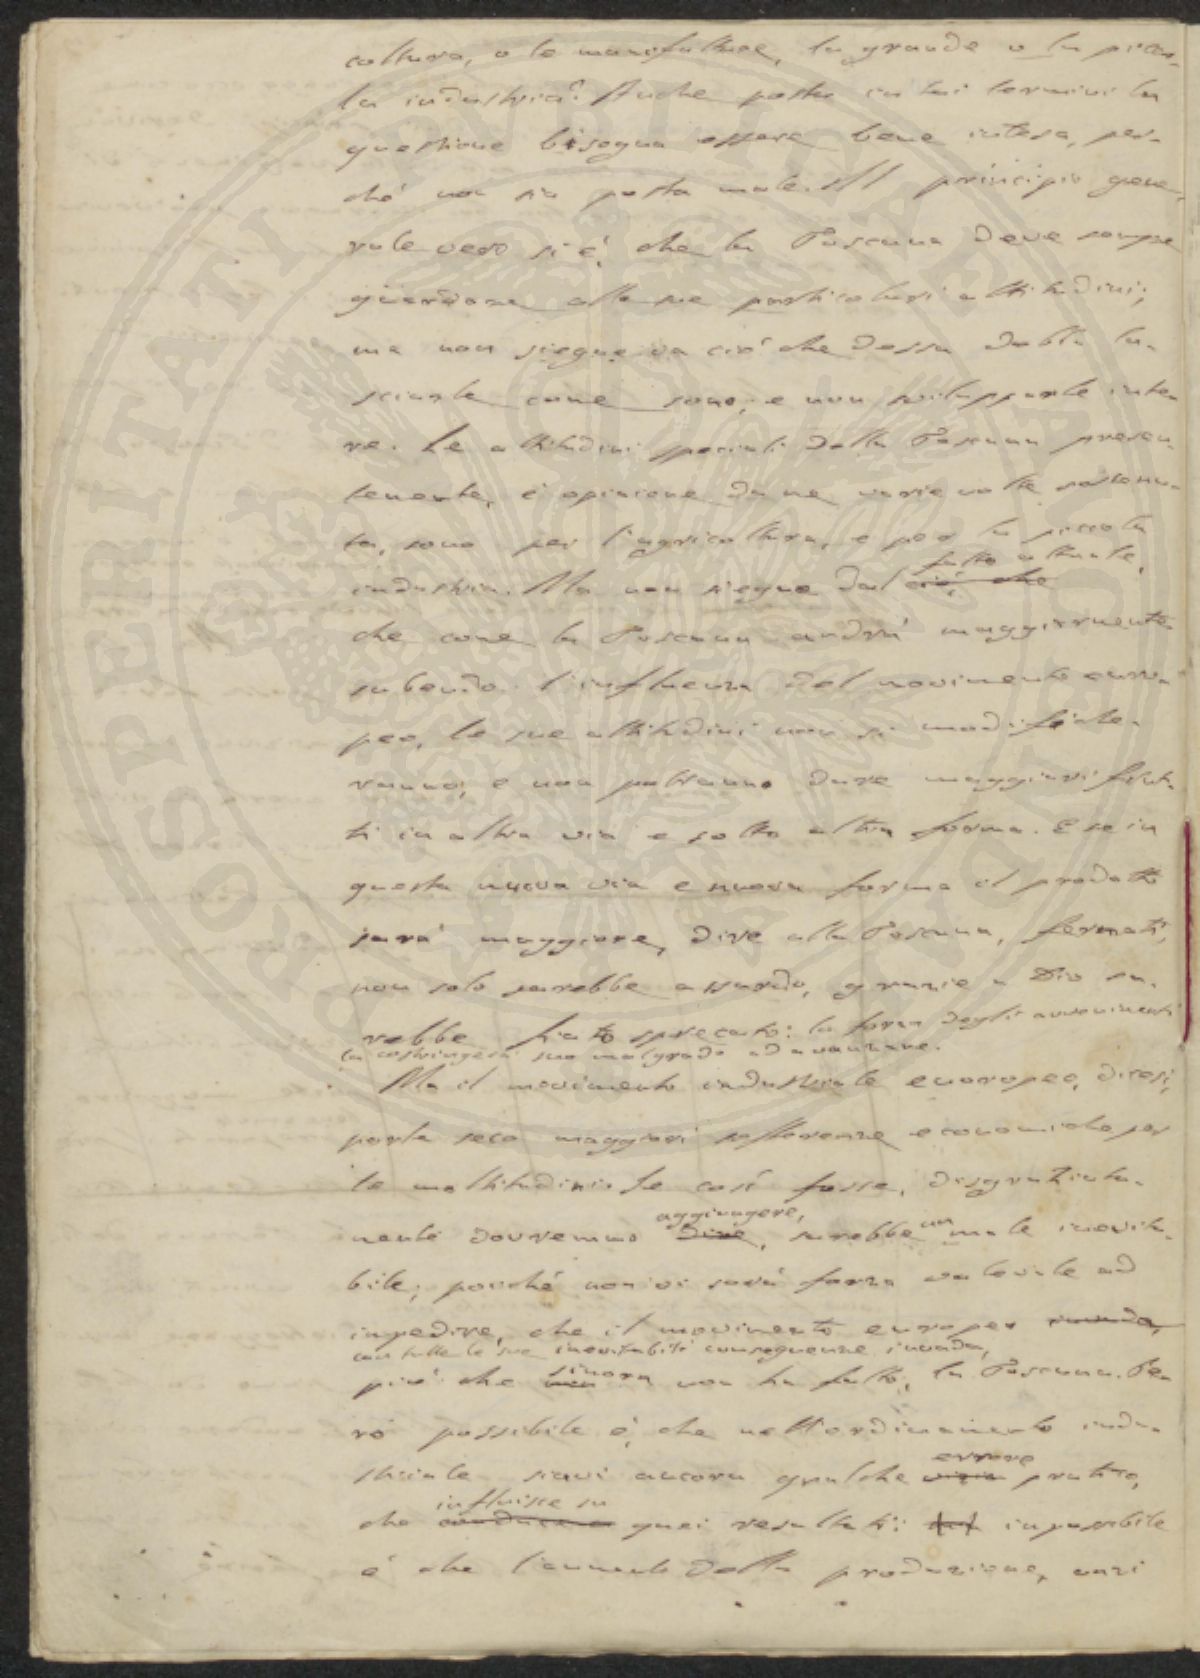 coltura, o le manifatture, la grande o la picco-
la industria? Anche posta in tai termini la
questione bisogna essere bene intesa, per-
ché non sia posta male. Il principio gene-
rale vero si è, che la Toscana deve sempre
guardare alle sue particolari attitudini;
ma non siegue da ciò che dessa debba la-
sciarle come sono, e non svilupparle inte-
re. Le attitudini speciali della Toscana presen-
temente, è opinione da me varie volte sostenu-
ta, sono per l'agricoltura, e per la piccola
industria. Ma non siegue dal ciò, che fatto attuale,
che come la Toscana andrà maggiormente
subendo l'influenza del movimento euro-
peo, le sue attitudini non si modifiche-
ranno, e non potranno dare maggiori frut-
ti in altra via e sotto altra forma. E se in
questa nuova via e nuova forma il prodotto
sarà maggiore, dire alla Toscana, fermati,
non solo sarebbe assurdo, grazie a Dio sa-
rebbe fiato sprecato: la forza degli avvenimenti
la costringerà suo malgrado ad avanzare.
Ma il movimento industriale europeo, dicesi,
porta seco maggiori sofferenze economiche per
le moltitudini. Se così fosse, disgraziata-
mente dovremmo dire aggiugere, sarebbe un male inevita-
bile; poiché non vi sarà forza valevole ad
impedire, che il movimento europeo invada,
con tutte le sue inevitabili conseguenze invada,
più che non sinora non ha fatto, la Toscana. Pe-
rò possibile è, che nell'ordinamento indu-
striale siavi ancora qualche vizio errore pratico,
che conduce a influisce su quei resultati: ma impossibile
è che l'aumento della produzione, anzi